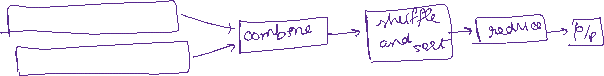 combine
shuffle
and sort
reduce
o/p